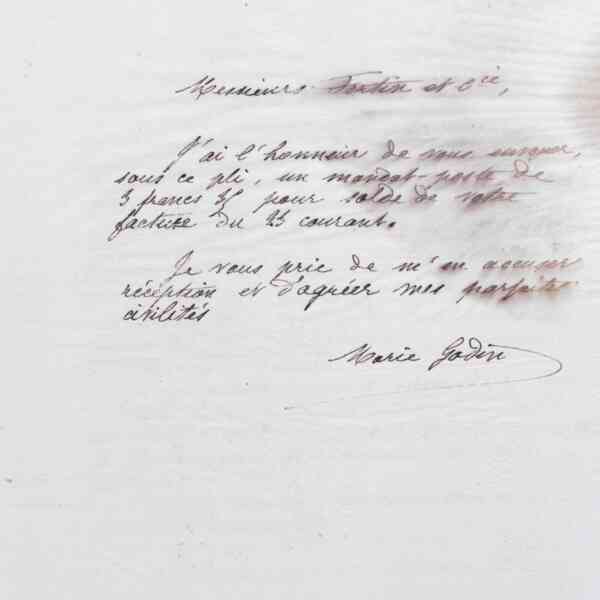 Messieurs Fortin et Cie,
J'ai l'honneur de vous envoyer,
sous ce pli, un mandat-poste de
3 francs 35 pour solde de votre
facture du 23 courant.
Je vous prie de m'en accuser
réception et d'agréer mes parfaites
civilités
Marie Godin